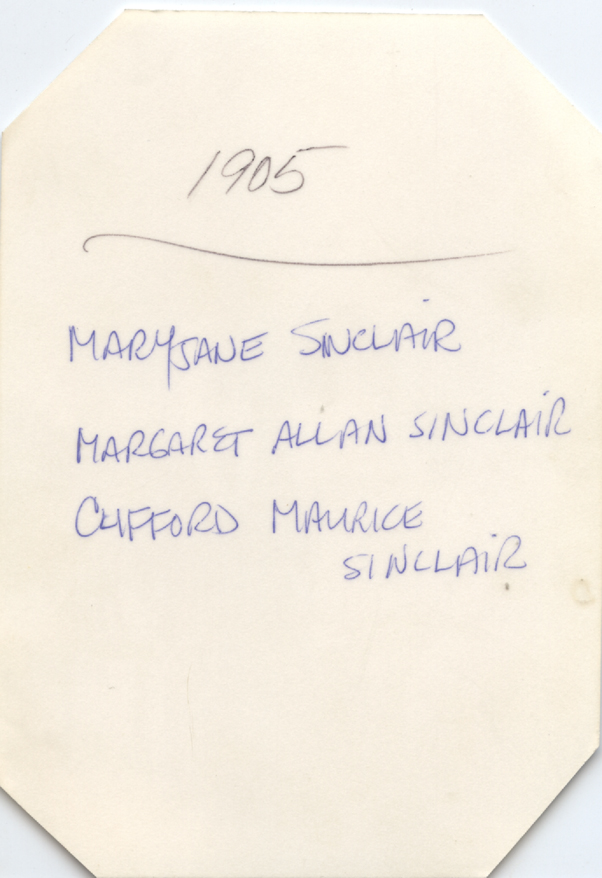 1905
MARYJANE SINCLAIR
MARGARET ALLAN SINCLAIR
CLIFFORD MAURICE
SINCLAIR